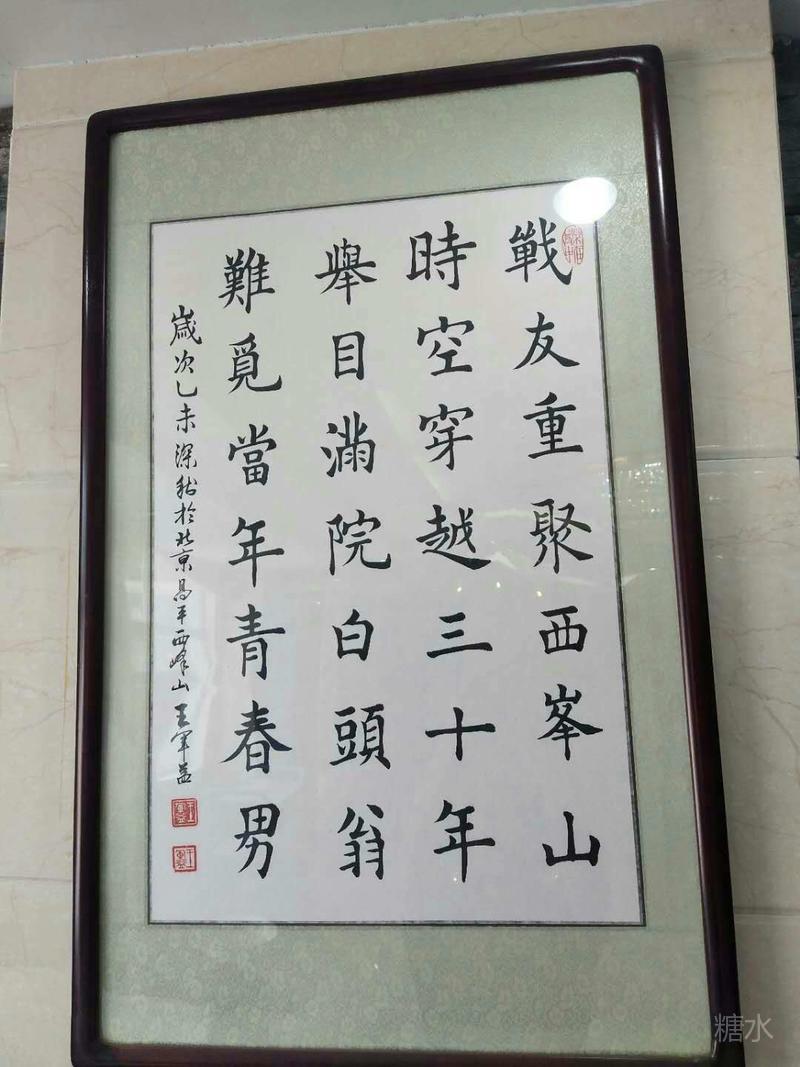 戰友重聚西峯山
時空穿越三十年
舉目滿院白頭翁
難覓當年青春男
歲次乙未深秋於北京昌平西峰山王軍益
糖水